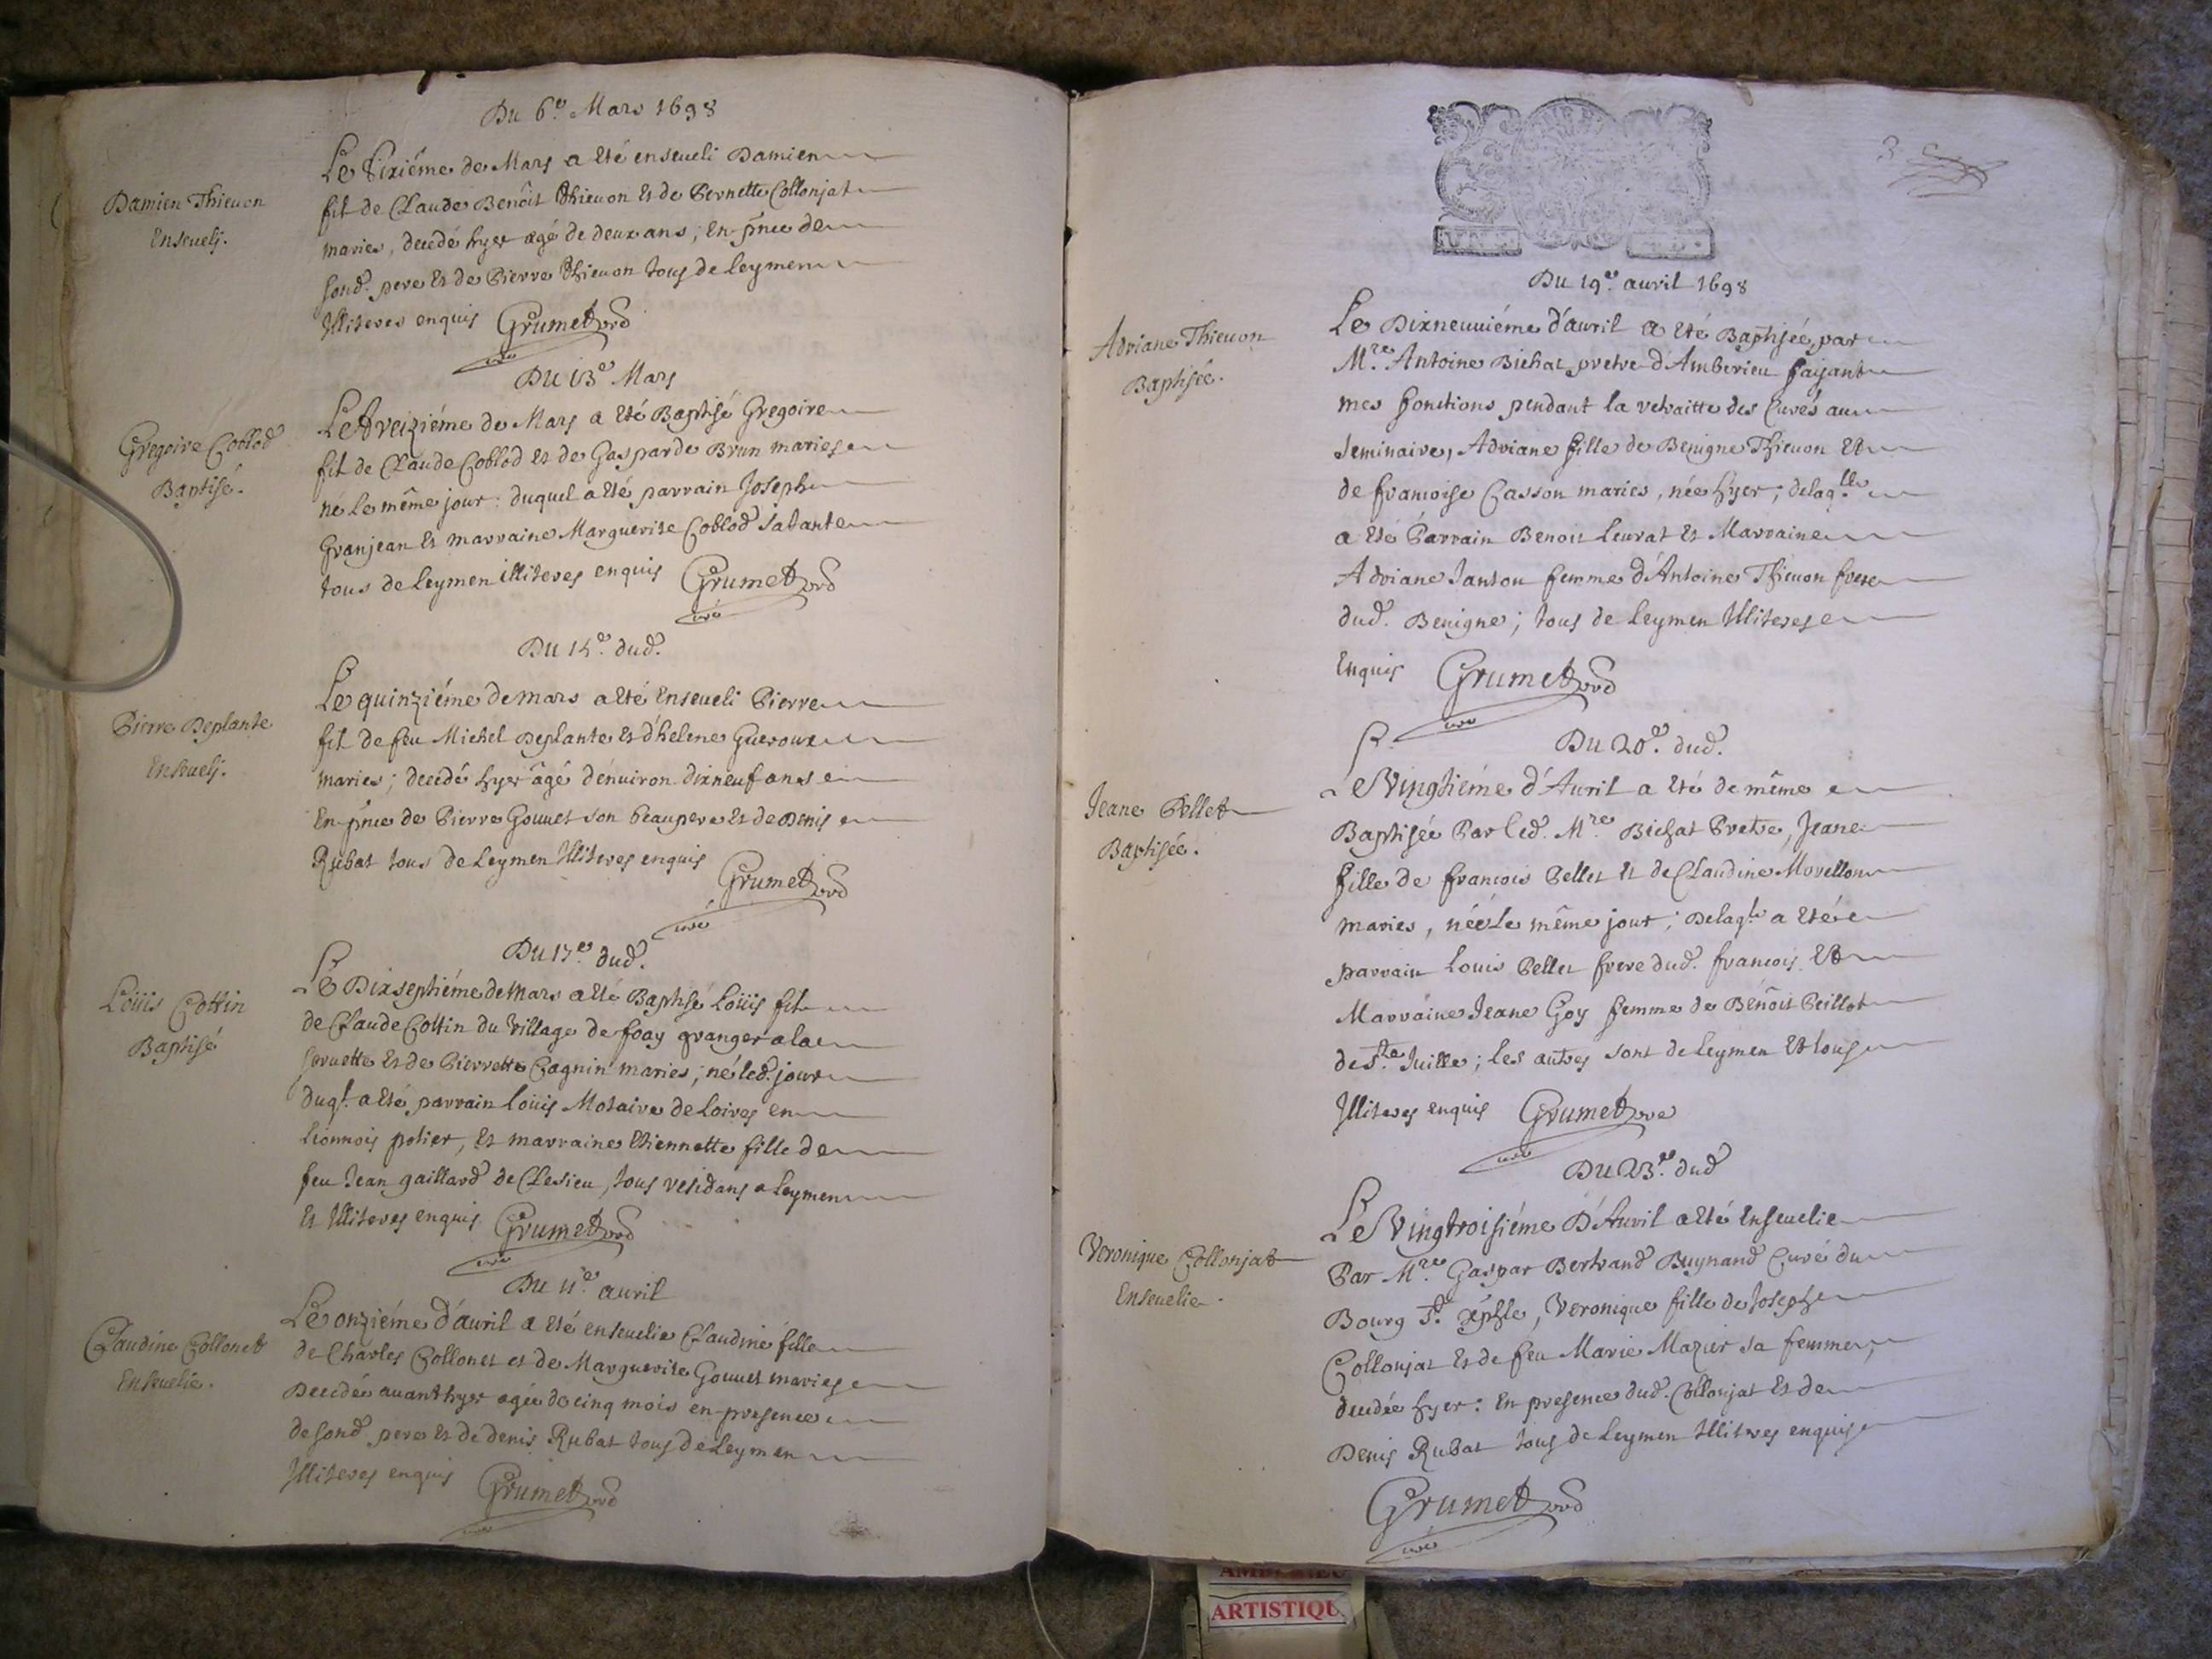 Du 6.e Mars 1698
Damien Thieuon
Enseuelj.
Le Sixiéme de Mars a eté enseueli Damien
fil de Claude Benôit Thieuon et de Pernette Collonjat
maries, decedé hyer agé de deux ans; en pñce de
sond. pere et de Pierre Thieuon tous de Leymen
Illiteres enquis Grumet
curé
Du 13.e Mars
Gregoire Coblod
Baptisé.
Le treiziéme de Mars a eté Baptisé Gregoire
fil de Claude Coblod et de Gasparde Brun maries
né le même jour: duquel a eté parrain Joseph
Granjean et marraine Marguerite Coblod sa tante
tous de Leymen illiteres enquis Grumet
curé
Du 15.e dud.
Pierre Deplante
Enseuelj.
Le quinziéme de mars a eté Enseueli Pierre
fil de feu Michel Deplante et d'helene Gueroux
maries; decedé hyer âgé d'enuiron dixneuf ans
En pñce de Pierre Gouuet son beaupere et de Denis
Rubat tous de Leymen Illiteres enquis
Grumet
curé
Du 17.e dud.
Loüis Cottin
Baptisé
Le Dixseptiéme de Mars a eté Baptisé Loüis fil
de Claude Cottin du Village de foay granger a la
seruette et de Pierrette Cagnin maries; né led. jour
duql. a eté parrain Loüis Motaire de Loires en
Lionnois potier, et marraine Etiennette fille de
feu Jean gaillard de Clesieu, tous residans a Leymen
et Illiteres enquis Grumet
curé
Du 11.e auril
Claudine Collonet
Enseuelie.
Le onziéme d'auril a eté enseuelie Claudine fille
de Charles Collonet et de Marguerite Gouuet maries
Decedée auanthyer agée de cinq mois en presence
de sond. pere et de denis Rubat tous de Leymen
Illiteres enquis Grumet
curé
3
Du 19.e auril 1698
Adriane Thieuon
Baptisée.
Le Dixneuuiéme d'auril a eté Baptisée, par
M.re Antoine Bichat pretre d'Amberieu faisant
mes fonctions pendant la retraitte des Curés au
seminaire, Adriane fille de Benigne Thieuon et
de francoise Casson maries, née hyer; delaq.lle
a eté Parrain Benoit Leurat et Marraine
Adriane Janton femme d'Antoine Thieuon frere
dud. Benigne; tous de Leymen Illiteres
Enquis Grumet
curé
Du 20.e dud.
Jeane Pellet
Baptisée.
Le Vingtiéme d'Auril a eté de même
Baptisée Par led. M.re Bichat Pretre, Jeane
fille de francois Pellet et de Claudine Morellon
maries, née le même jour; Delaq.le a eté
parrain Louis Pellet frere dud. francois, et
Marraine Jeane Goy femme de Benôit Peillot
de S.te Juille; les autres sont de Leymen et tous
Illiteres enquis Grumet
curé
Du 23.e dud
Veronique Collonjat
Enseuelie.
Le Vingtroisiéme D'Auril a eté Enseuelie
Par M.re Gaspar Bertrand Buynand Curé du
Bourg S.t xpfle, Veronique fille de Joseph
Collonjat et de feu Marie Mazuir sa femme,
decedée hyer: En presence dud. Collonjat et de
Denis Rubat tous de Leymen Illiteres enquis
Grumet
curé
ARTISTIQU